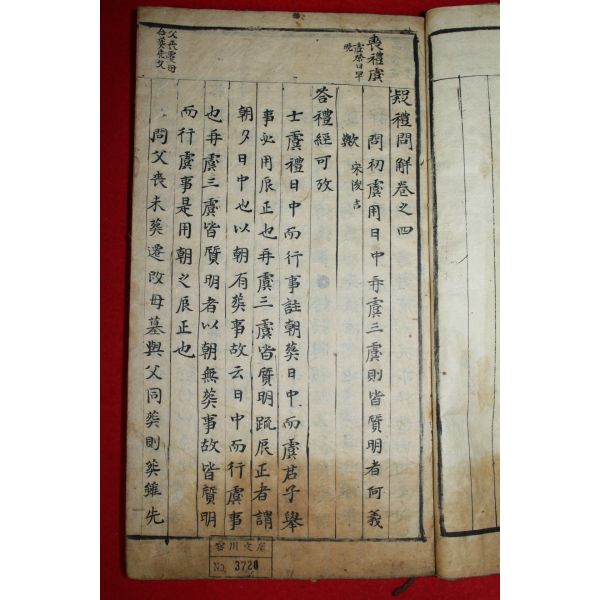 疑禮問解卷之四
喪禮虞
虞祭日早
晩
問初虞用日中再虞三虞則皆質明者何義
歟 宋浚吉
答禮經可攷
士虞禮日中而行事註朝葬日中而虞君子舉
事必用辰正也再虞三虞皆質明疏辰正者謂
朝夕日中也以朝有葬事故云日中而行虞事
也再虞三虞皆質明者以朝無葬事故皆質明
而行虞事是用朝之辰正也
父喪遷母
合葬先父
問父喪未葬遷改母墓與父同葬則葬雖先
No. 3720